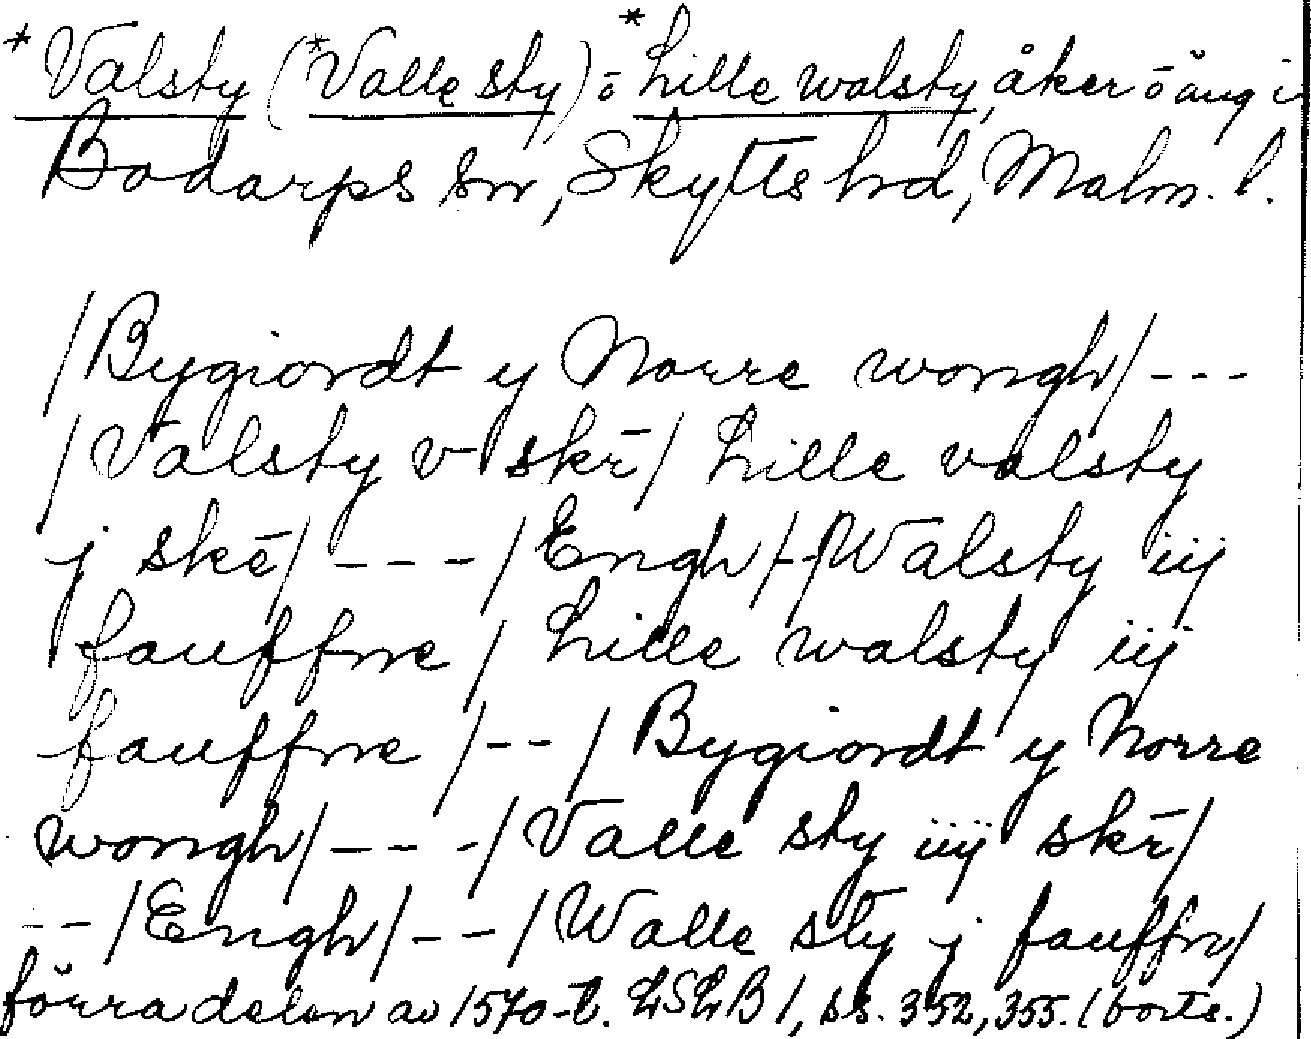 *Valsty (*Valle sty) o *Lille walsty, åker o äng i
Bodarps sn, Skytts hd, Malm. l.
/Bygiordt y Norre wongh/ ---
/Valsty v skr̄/ Lille valsty
j skē/ --- /Engh/-/Walsty iij
fauffne/ Lille walsty iij
fauffne /--/ Bygiordt y Norre
wongh/ --- / Valle sty iiij skr̄/
--/Engh/--/Walle sty j fauffn/
förra delen av 1570-t. LSLB 1, ss. 352, 355. (forts.)